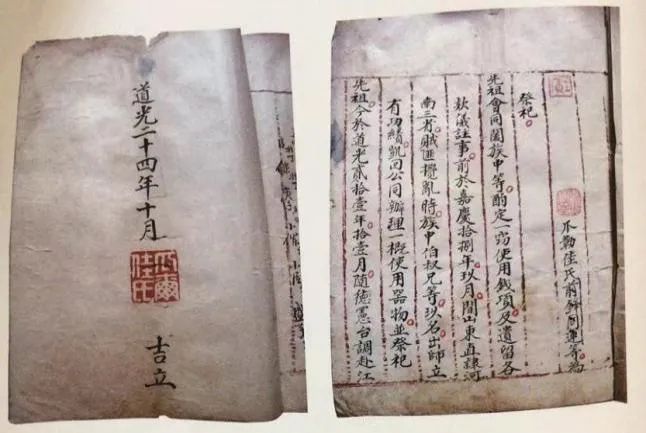 道光二十四年十月
瓜爾佳氏
吉立
瓜勒佳氏前鋒同運等為
祭祀
先祖會同閤族中等酌定一窃使用錢項及遺留各
欵儀註事前於嘉慶拾捌年玖月間山東直隸河
南三省賊匪攪亂時族中伯叔兄等玖名出師立
有功績凱回公同辦理一概使用器物並祭祀
先祖今於道光貳拾壹年拾壹月隨德憲台調赴江